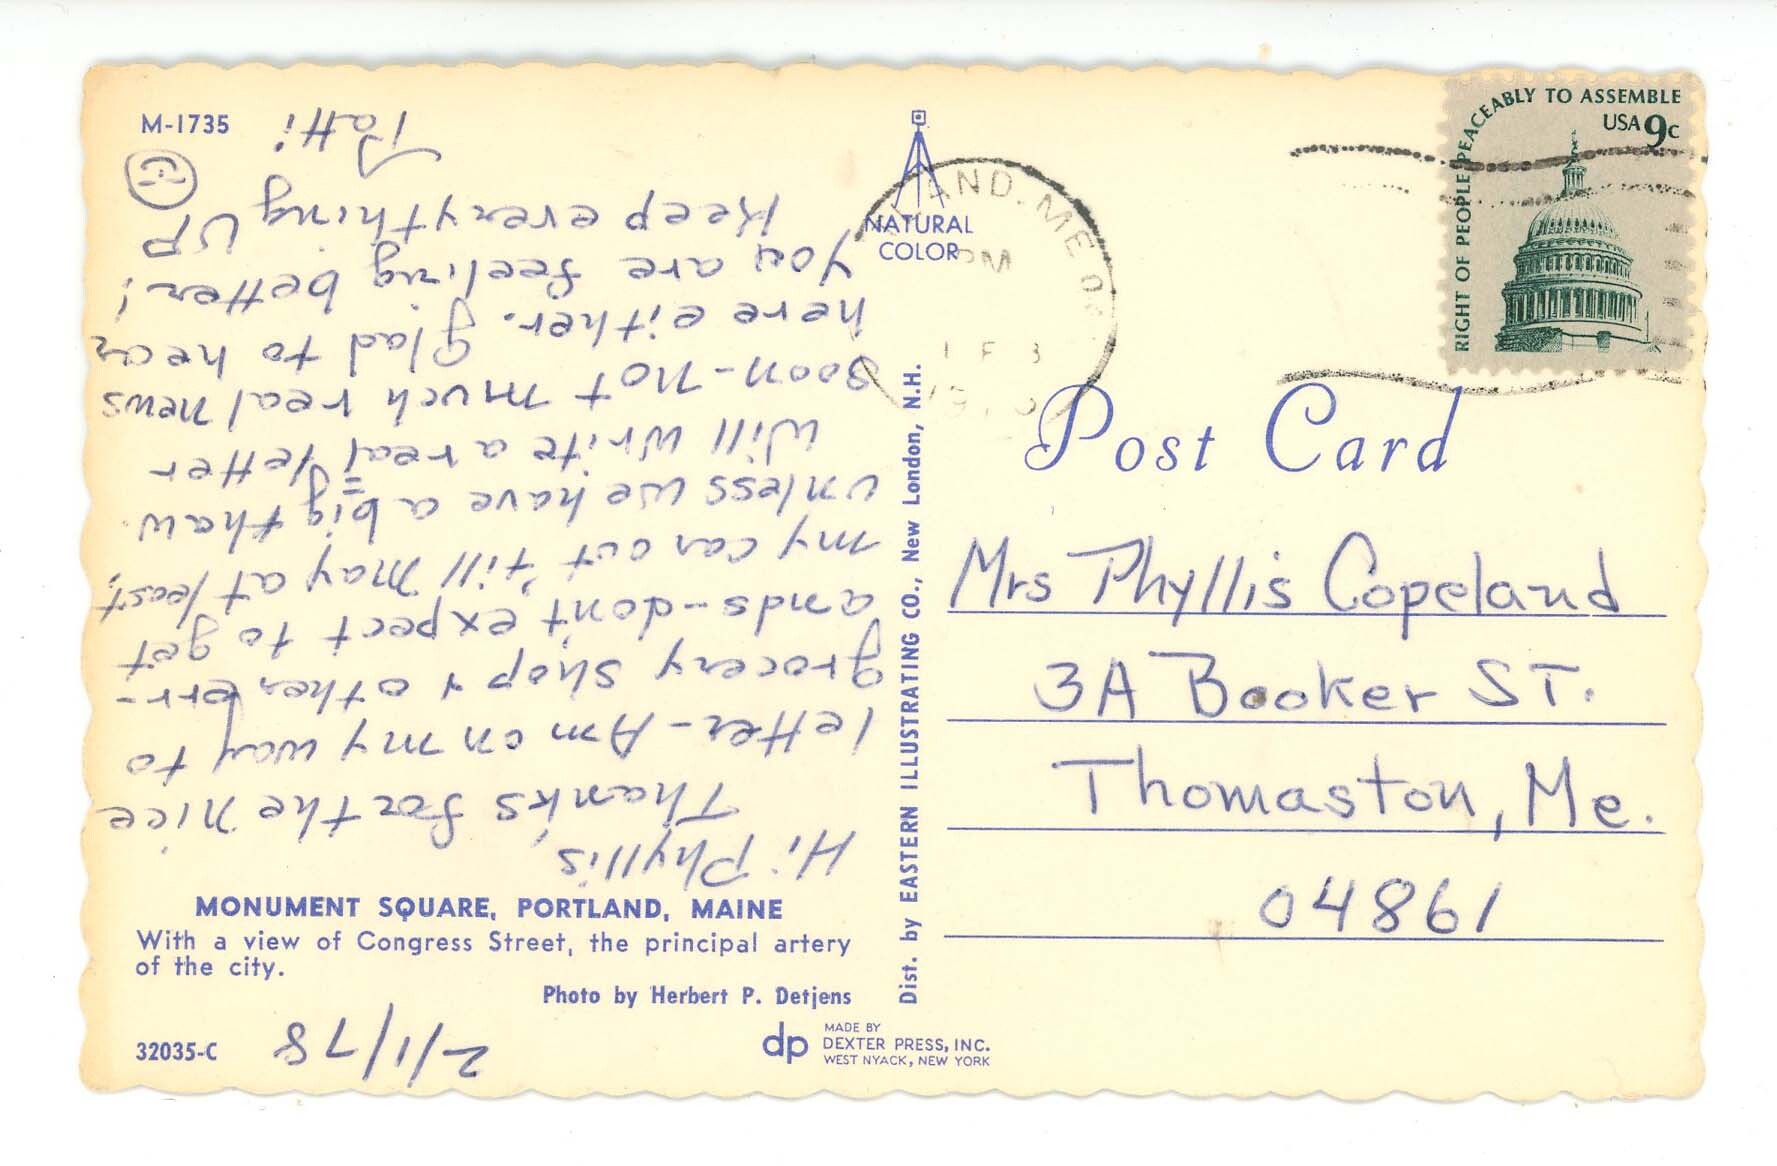 M-1735
2/1/78
Hi Phyllis,
Thanks for the nice
letter - Am on my way to
grocery shop & other err-
ands - don't expect to get
my car out 'till May at least,
unless we have a big thaw.
Will write a real letter
soon - not much real news
here either. Glad to hear
you are feeling better!
Keep everything UP
Patti
MONUMENT SQUARE, PORTLAND, MAINE
With a view of Congress Street, the principal artery
of the city.
Photo by Herbert P. Detjens
32035-C
dp
MADE BY
DEXTER PRESS, INC.
WEST NYACK, NEW YORK
Dist. by EASTERN ILLUSTRATING CO., New London, N.H.
NATURAL
COLOR
AND. ME
PM
1 FEB
RIGHT OF PEOPLE PEACEABLY TO ASSEMBLE
USA 9c
Post Card
Mrs Phyllis Copeland
3A Booker ST.
Thomaston, Me.
04861